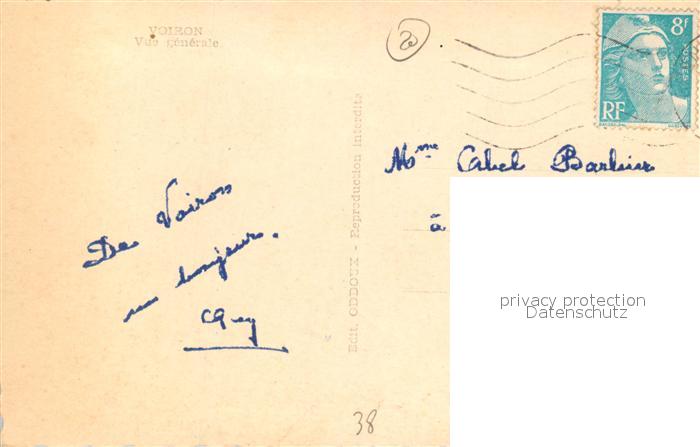 VOIRON
Vue générale
8f
POSTES
RF
Edit. ODDOUX - Reproduction interdite
Mme Abel Barbier
à
De Voiron
un bonjour.
38
privacy protection
Datenschutz